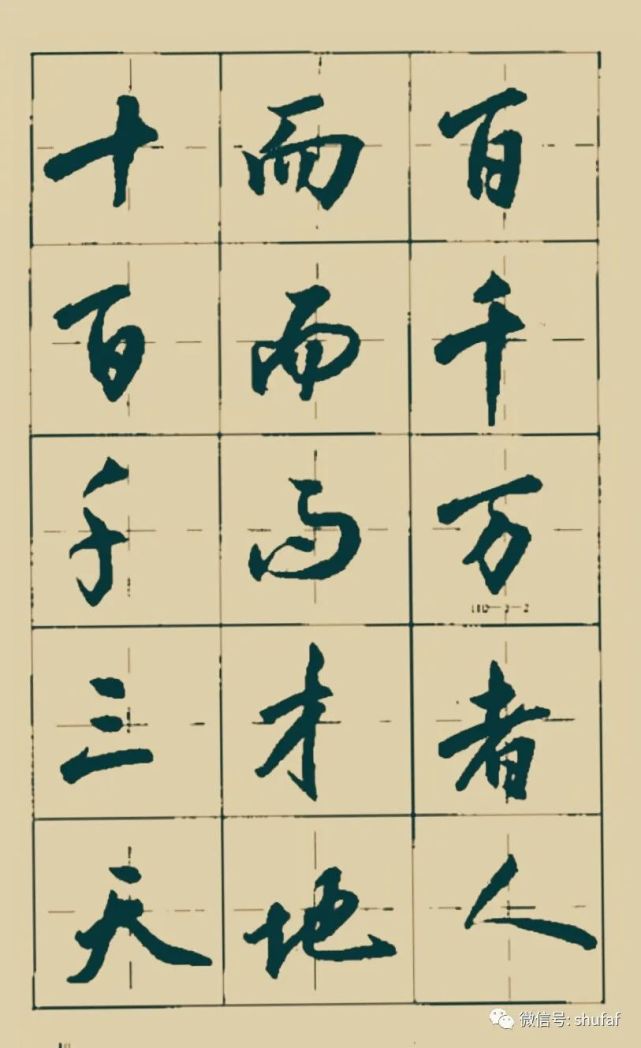 十而百
百而千
千而万
三才者
天地人
微信号: shufaf